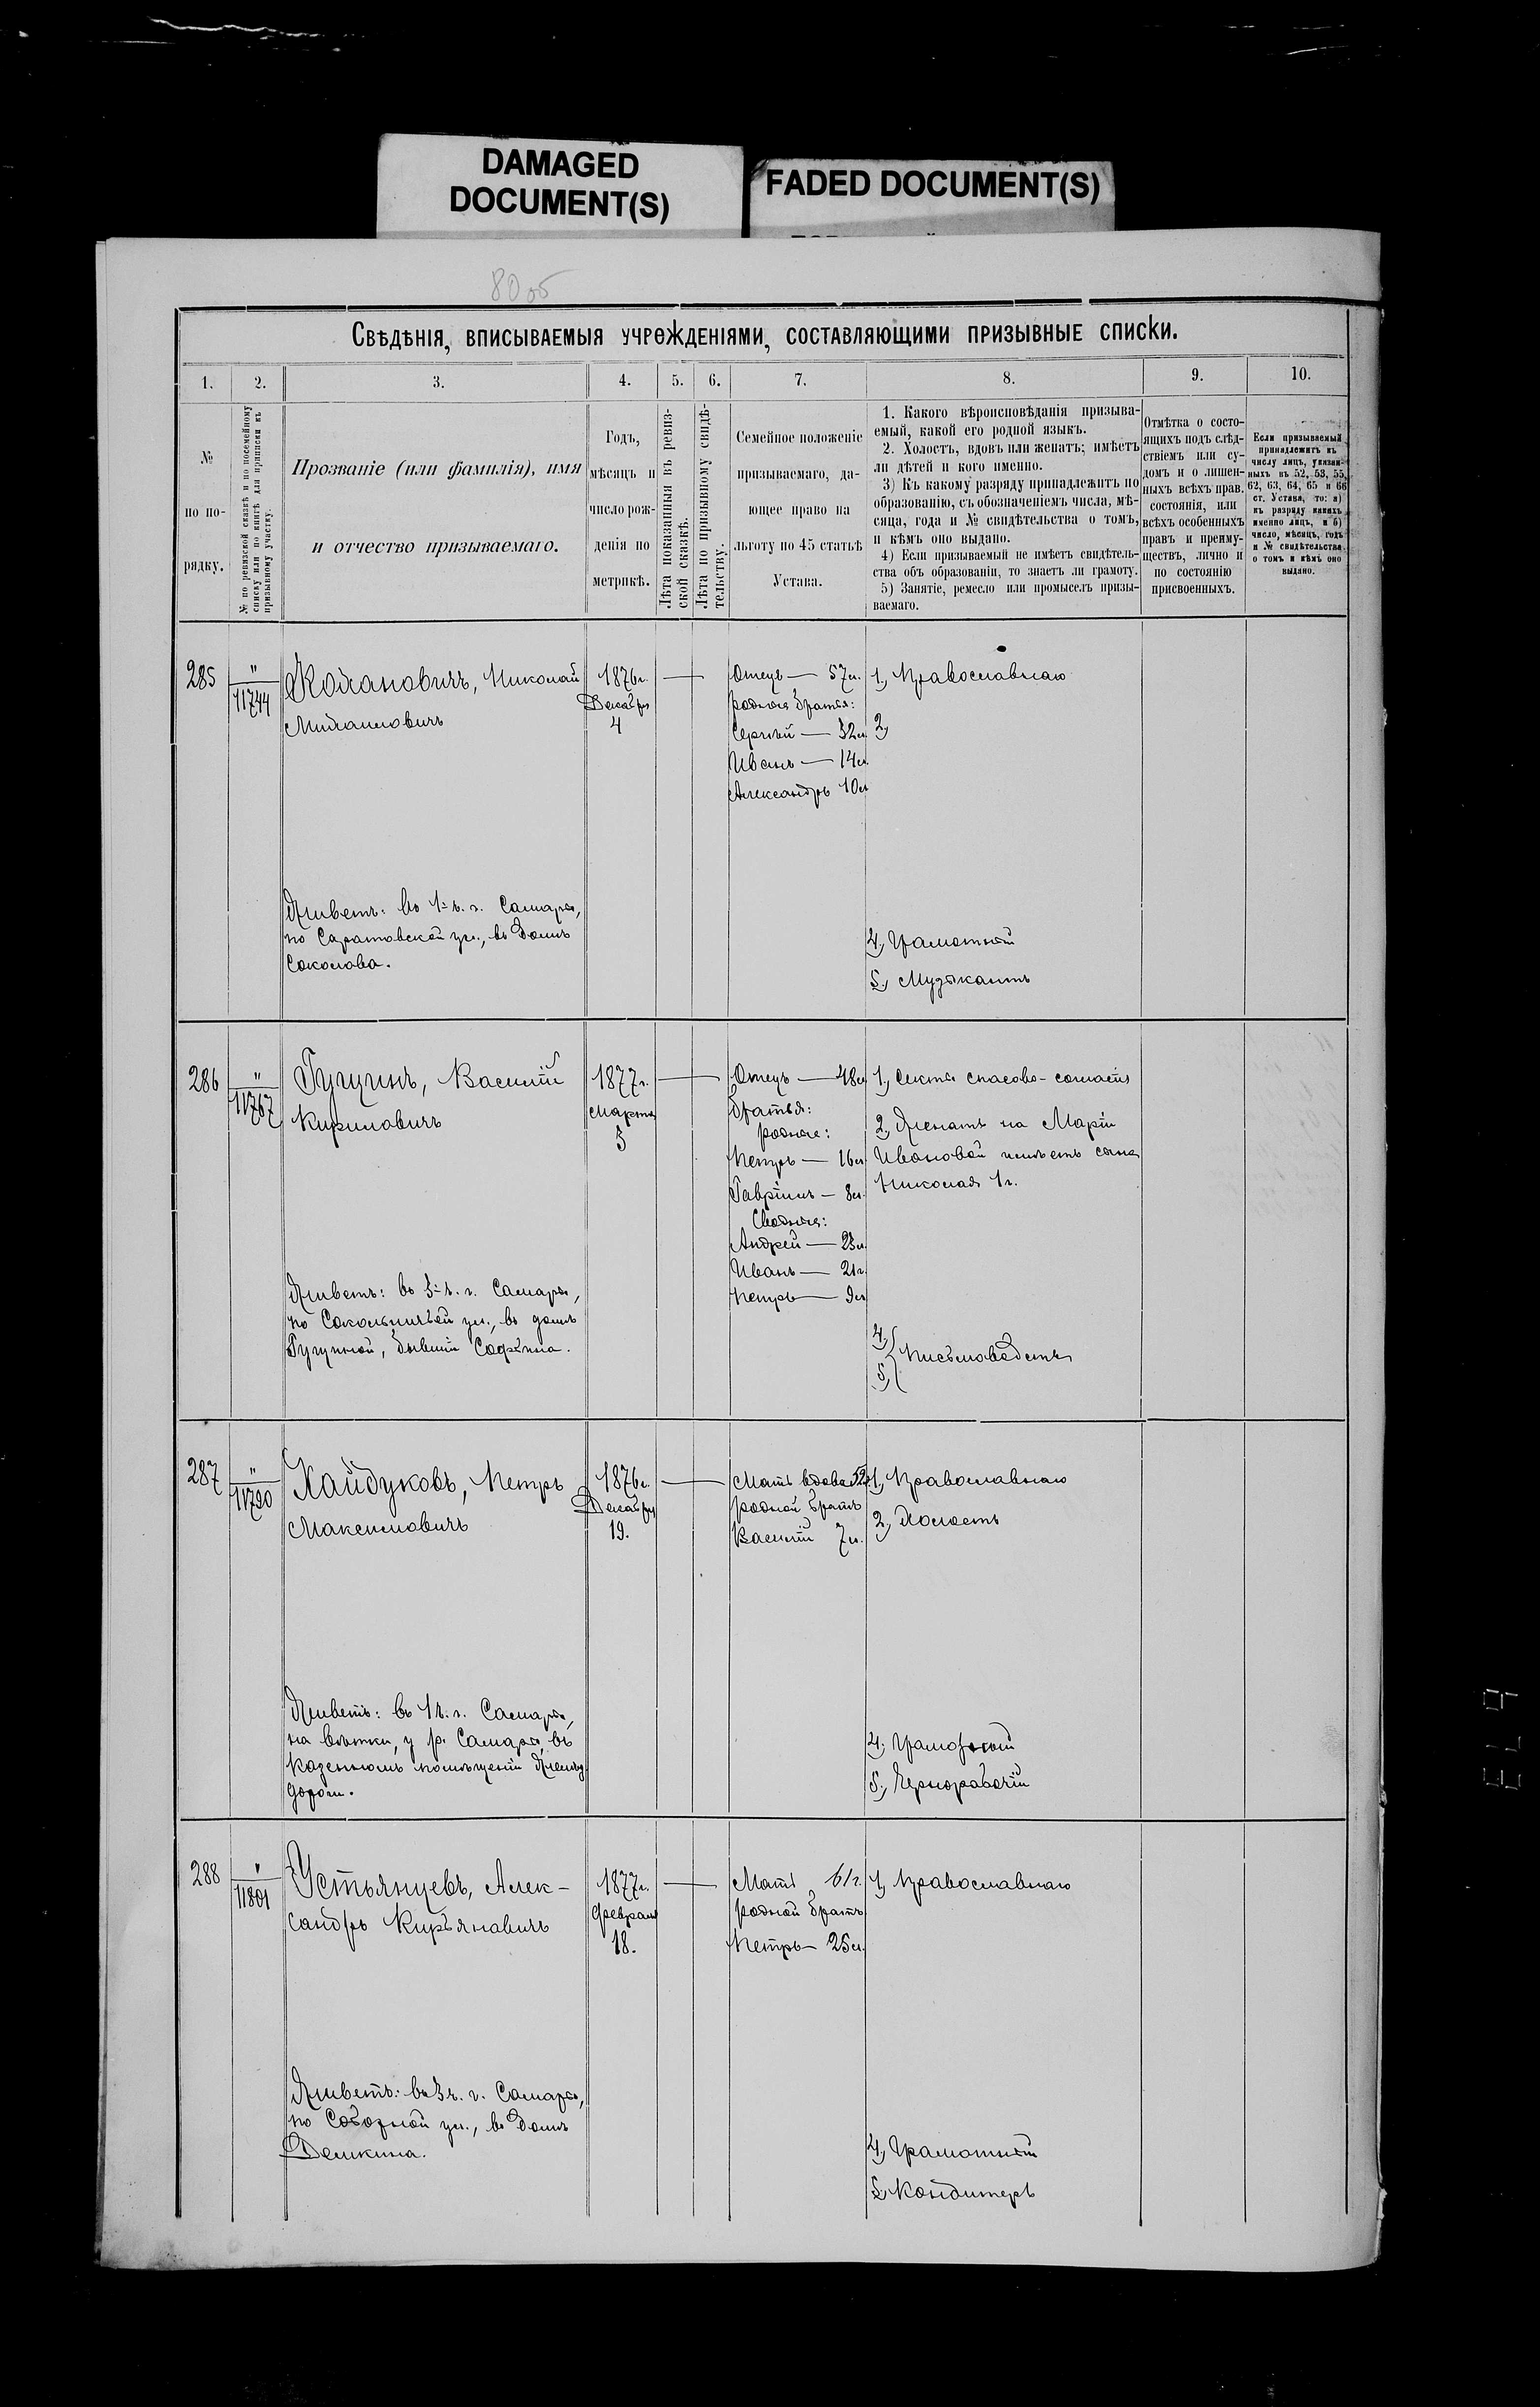 DAMAGED
DOCUMENT(S)
FADED DOCUMENT(S)
80об
Свѣдѣнія, вписываемыя учрежденіями, составляющими призывные списки.
1.
2.
3.
4.
5.
6.
7.
8.
9.
10.
№
по по-
рядку.
№ по ревизской сказкѣ и по посемейному
списку или по книгѣ для приписки къ
призывному участку.
Прозваніе (или фамилія), имя
и отчество призываемаго.
Годъ,
мѣсяцъ и
число рож-
денія по
метрикѣ.
Лѣта показанныя въ ревиз-
ской сказкѣ.
Лѣта по призывному свидѣ-
тельству.
Семейное положеніе
призываемаго, да-
ющее право на
льготу по 45 статьѣ
Устава.
1. Какого вѣроисповѣданія призыва-
емый, какой его родной языкъ.
2. Холостъ, вдовъ или женатъ; имѣетъ
ли дѣтей и кого именно.
3) Къ какому разряду принадлежитъ по
образованію, съ обозначеніемъ числа, мѣ-
сяца, года и № свидѣтельства о томъ,
и кѣмъ оно выдано.
4) Если призываемый не имѣетъ свидѣтель-
ства объ образованіи, то знаетъ ли грамоту.
5) Занятіе, ремесло или промыселъ призы-
ваемаго.
Отмѣтка о состо-
ящихъ подъ слѣд-
ствіемъ или су-
домъ и о лишен-
ныхъ всѣхъ прав.
состоянія, или
всѣхъ особенныхъ
правъ и преиму-
ществъ, лично и
по состоянію
присвоенныхъ.
Если призываемый
принадлежитъ къ
числу лицъ, указан-
ныхъ въ 52, 53, 55,
62, 63, 64, 65 и 66
ст. Устава, то: а)
къ разряду какихъ
именно лицъ, и б)
число, мѣсяцъ, годъ
и № свидѣтельства
о томъ и кѣмъ оно
выдано.
285
"
11744
Николай
Михаиловичъ
1876г.
Декабря
4
Отецъ — 57л.
родные братья:
Сергѣй — 32л
Иванъ — 14л.
Александръ 10л
1, Православнаго
2,
Живетъ: во 1й ч. г. Самары,
по Саратовской ул., въ домѣ
Соколова.
4, Грамотный
5, Музыкантъ
286
"
11767
Василій
Кириловичъ
1877г.
Марта
3
Отецъ — 48л
братья:
родные:
Петръ — 16л
Гавріилъ — 8л.
Сводные:
Андрей — 23л
Иванъ — 21г.
Петръ — 9л
1, Секты спасово-согласія
2, Женатъ на Маріи
Ивановой имѣетъ сына
Николая 1г.
Живетъ: въ 3й ч. г. Самары,
по Сокольничьей ул., въ домѣ
бывшій
4,
5,
Письмоводитель
287
"
11790
Хайдуковъ, Петръ
Максимовичъ
1876г.
Декабря
19.
Мать вдова 52
родной братъ
Василій 7л.
1, Православнаго
2, Холостъ
Живетъ: во 1 ч. г. Самары,
на вѣтки, у р. Самары, въ
Казенномъ помѣщеніи Желѣз.
дороги.
4, Грамотный
5, Чернорабочій
288
"
11801
Устьянцевъ, Алек-
сандръ Кирьяновичъ
1877г.
Февраля
18.
Мать 61г.
родной братъ
Петръ — 25л.
1, Православнаго
Живетъ: въ 3 ч. г. Самары,
по Соборной ул., въ домѣ
Демкина.
4, Грамотный
5, Кондитеръ